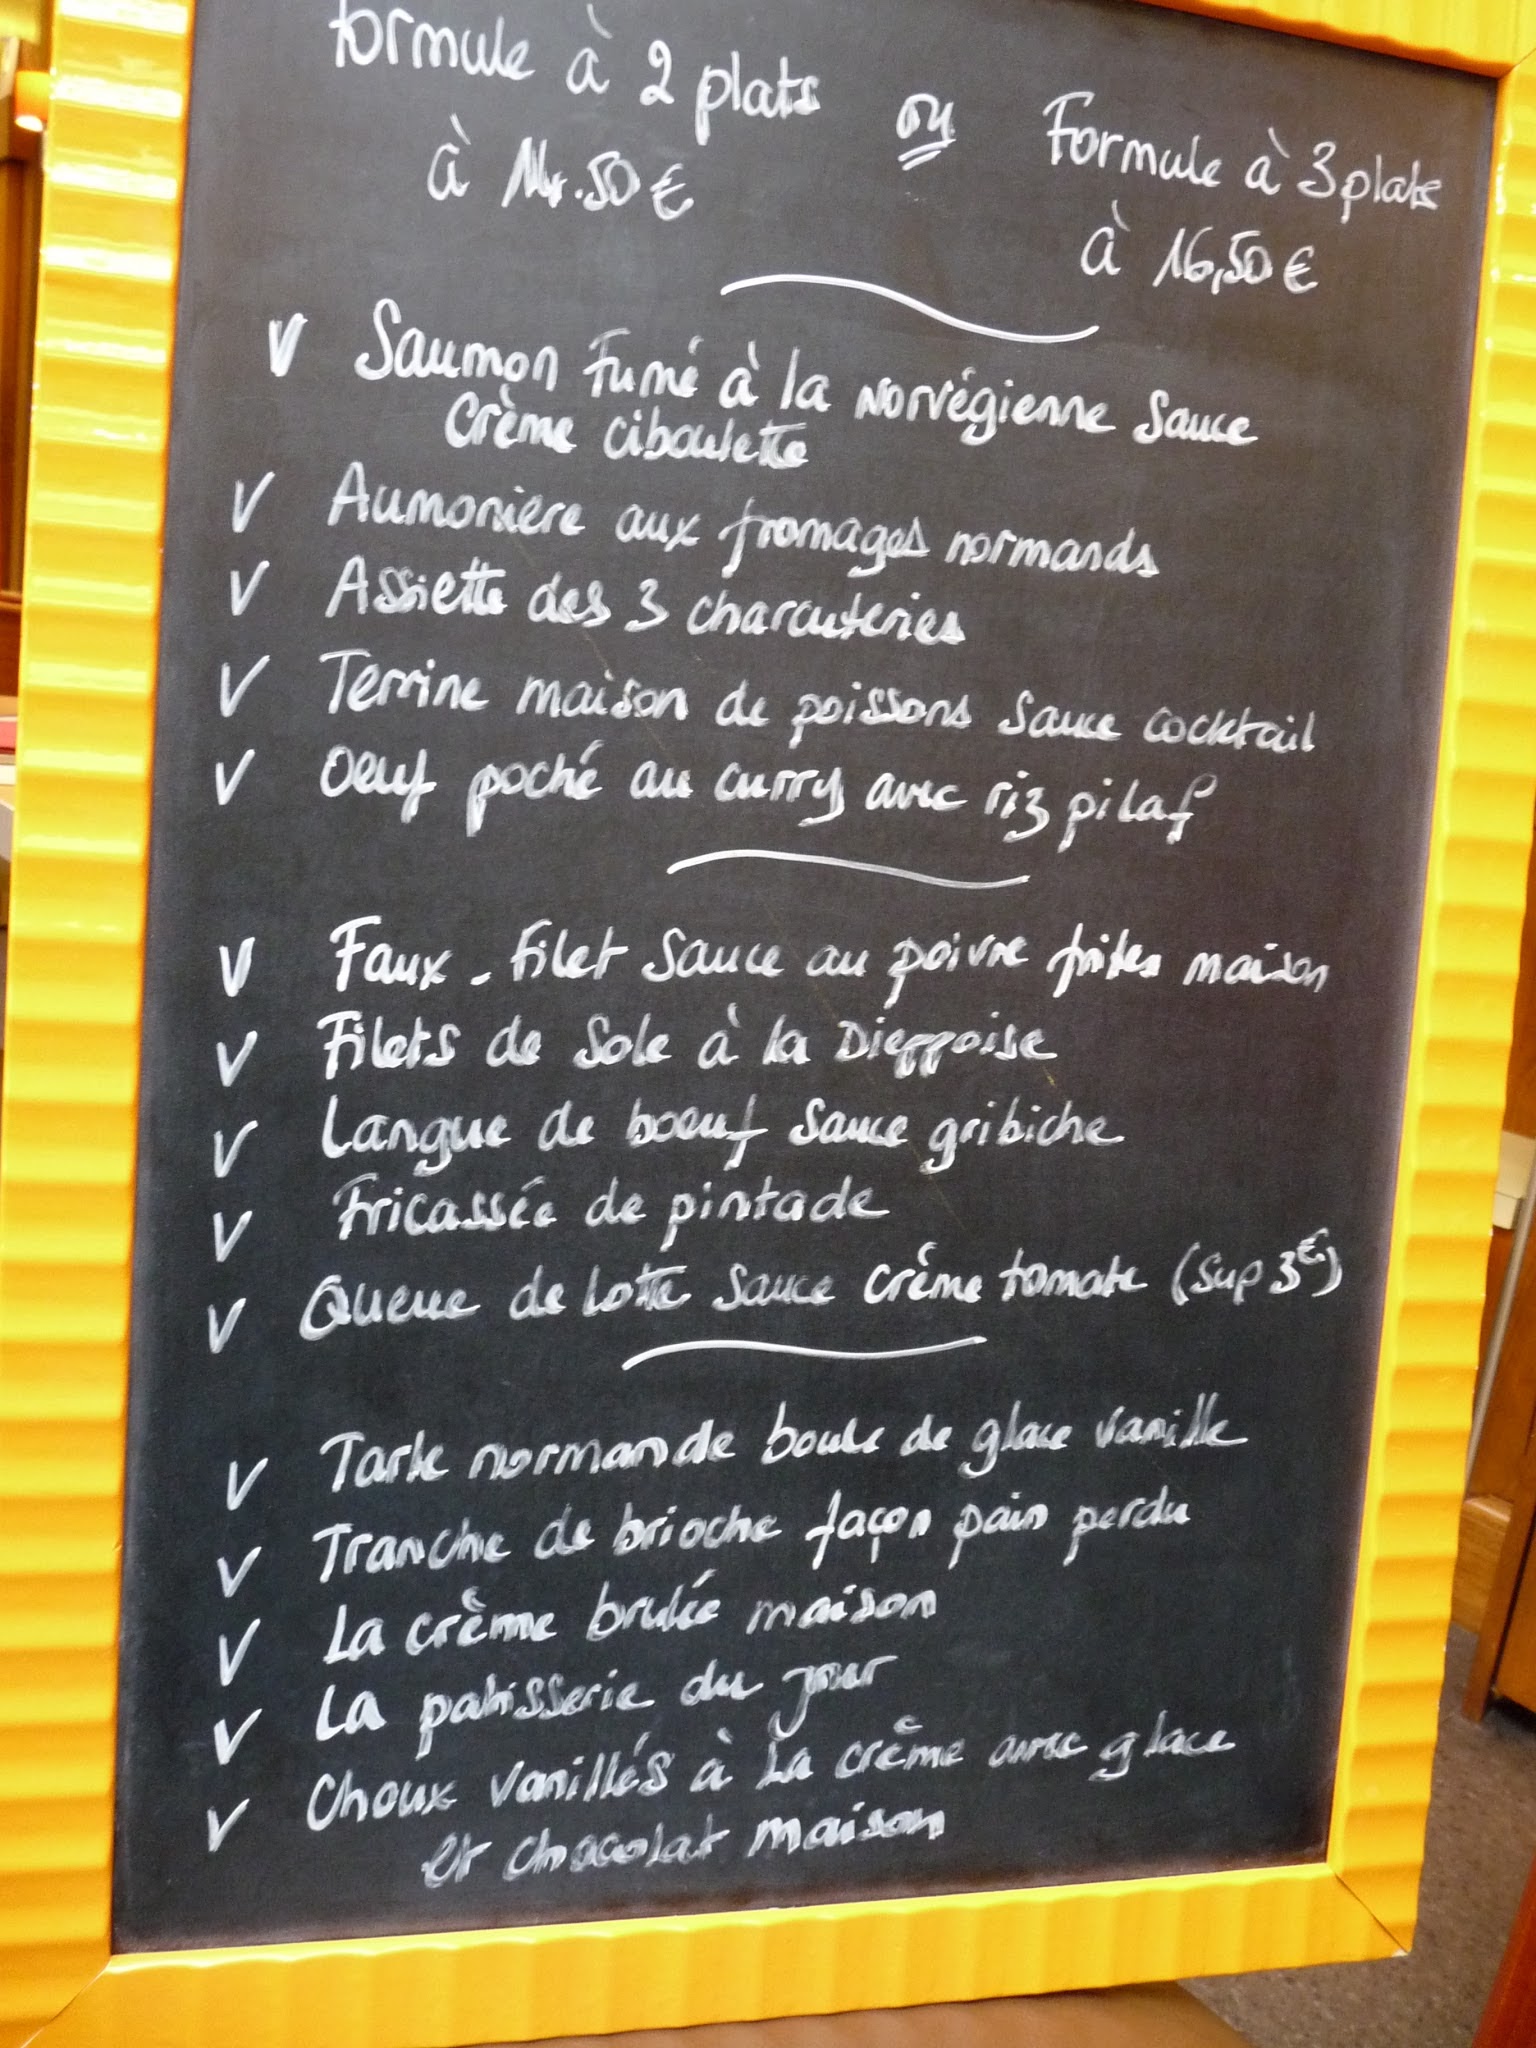 Formule à 2 plats ou Formule à 3 plats
à 14.50€ à 16,50€
V Saumon Fumé à la Norvégienne Sauce
Crème ciboulette
V Aumonière aux fromages normands
V Assiette des 3 charcuteries
V Terrine maison de poissons sauce cocktail
V Oeuf poché au curry avec riz pilaf
V Faux-Filet Sauce au poivre frites maison
V Filets de Sole à la Dieppoise
V Langue de boeuf sauce gribiche
V Fricassée de pintade
V Queue de lotte sauce crème tomate (sup 3€)
V Tarte normande boule de glace vanille
V Tranche de brioche façon pain perdu
V La crème brulée maison
V La patisserie du jour
V Choux vanillés à la crème avec glace
et chocolat maison